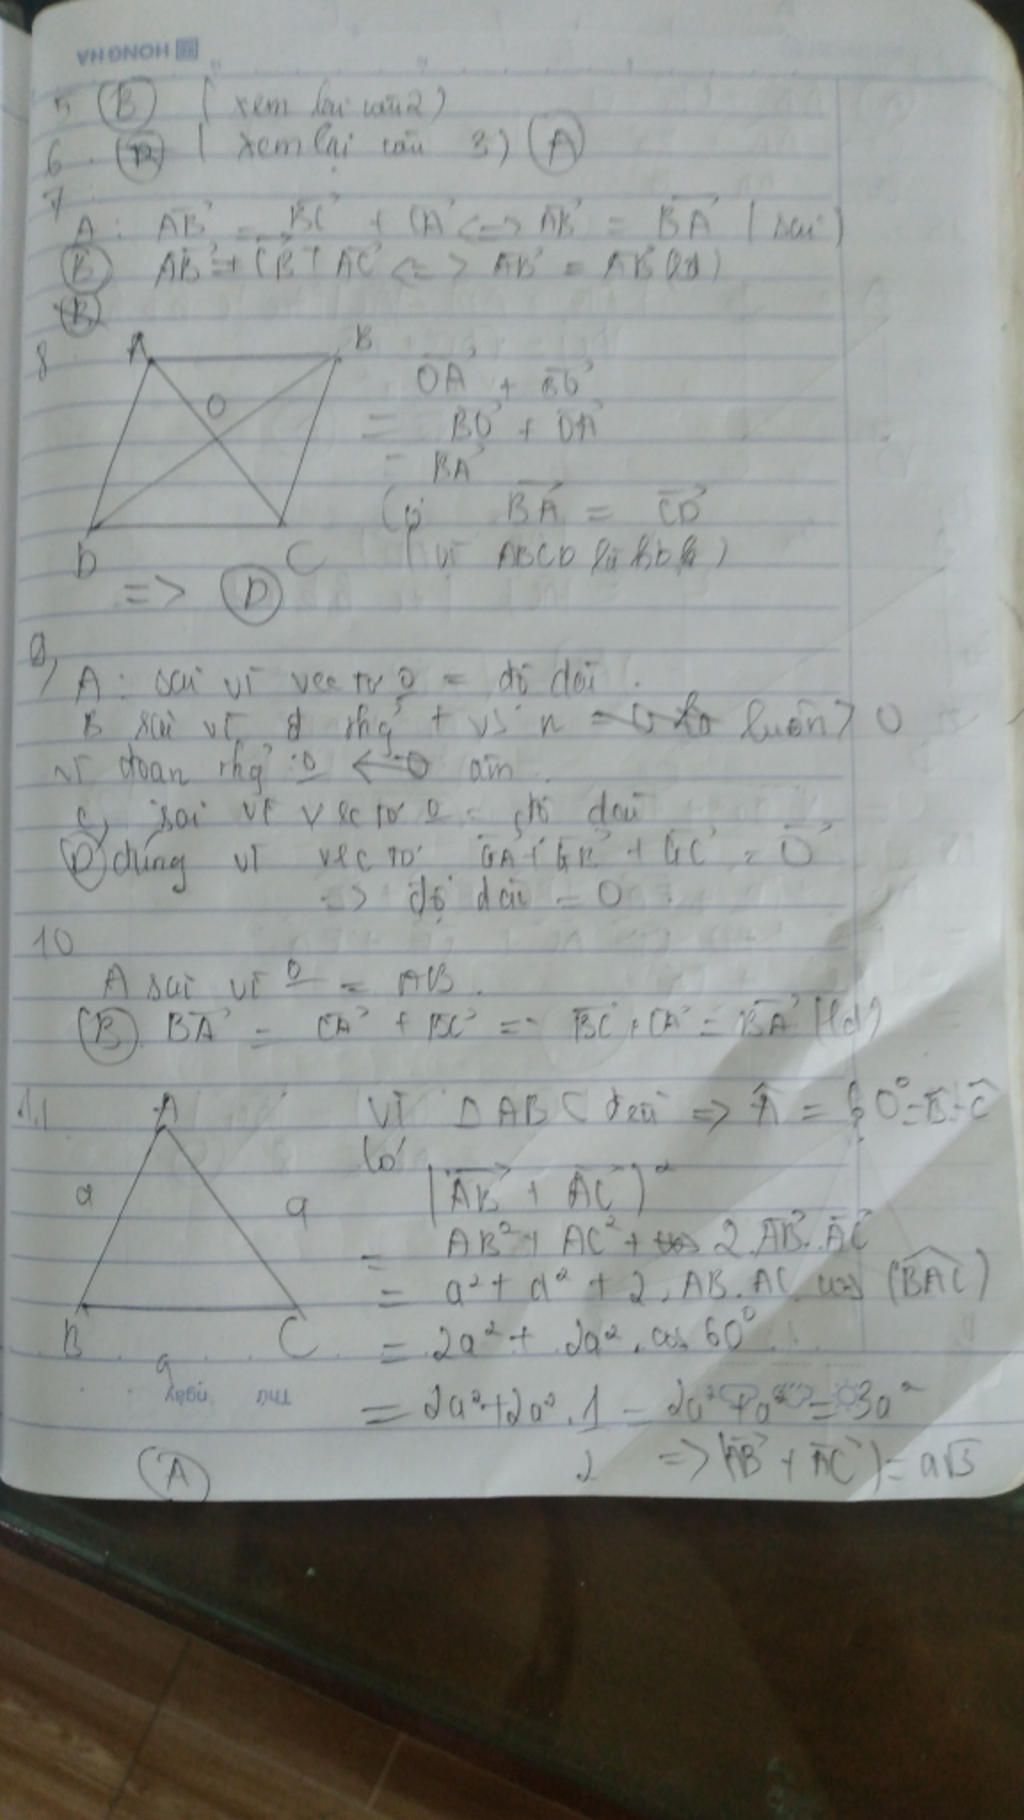 HONG HA
5 B ( xem lại câu 2)
6. ( xem lại câu 3) A
7
A: AB = BC + CA <=> AB = BA (sai)
B AB = CB + AC <=> AB = AB (lđ)
B
8 A B
O
D C
OA + BO
= BO + OA
= BA
Có BA = CD
(vì ABCD là hbh)
=> D
9,
A: sai vì vectơ 0 = độ dài.
B sai vì + vs luôn > 0
vì đoạn thg âm.
C, sai vì vectơ 0 = độ dài
D đúng vì vectơ GA + GB + GC = 0
=> độ dài = 0
10
A sai vì 0 = AB.
B. BA = CA + BC = BC + CA = BA (lđ)
11 A
a a
B C
a
Vì Δ ABC đều => A = 60° = B = C
Có
(AB + AC)²
= AB² + AC² + 2 AB. AC
= a² + a² + 2. AB. AC. cos (BAC)
= 2a² + 2a². cos 60°
= 2a² + 2a². 1/2 = 2a² + a² = 3a²
=> |AB + AC| = a√3
A
Thứ ngày